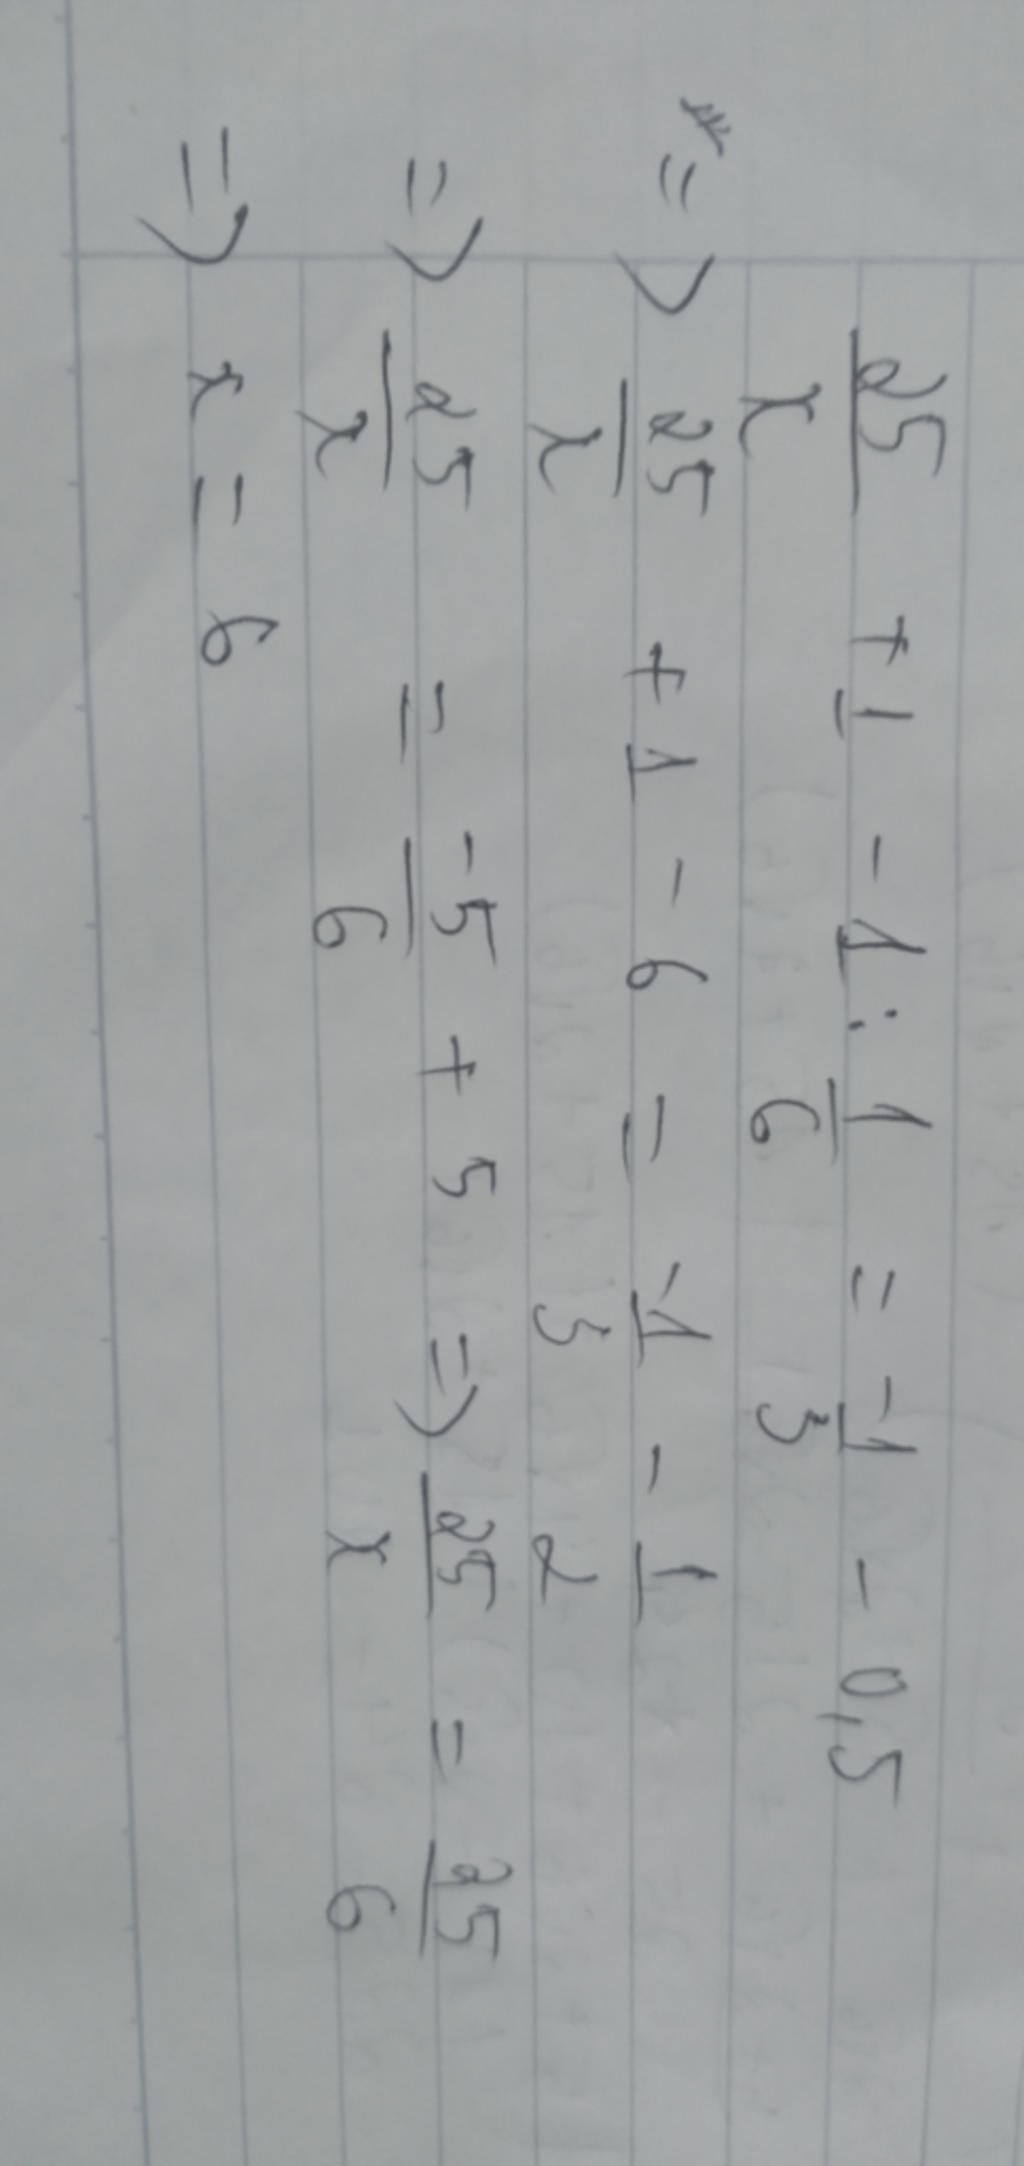 25/x + 1 - 1 : 1/6 = -1/3 - 0,5
=> 25/x + 1 - 6 = -1/3 - 1/2
=> 25/x = -5/6 + 5 => 25/x = 25/6
=> x = 6